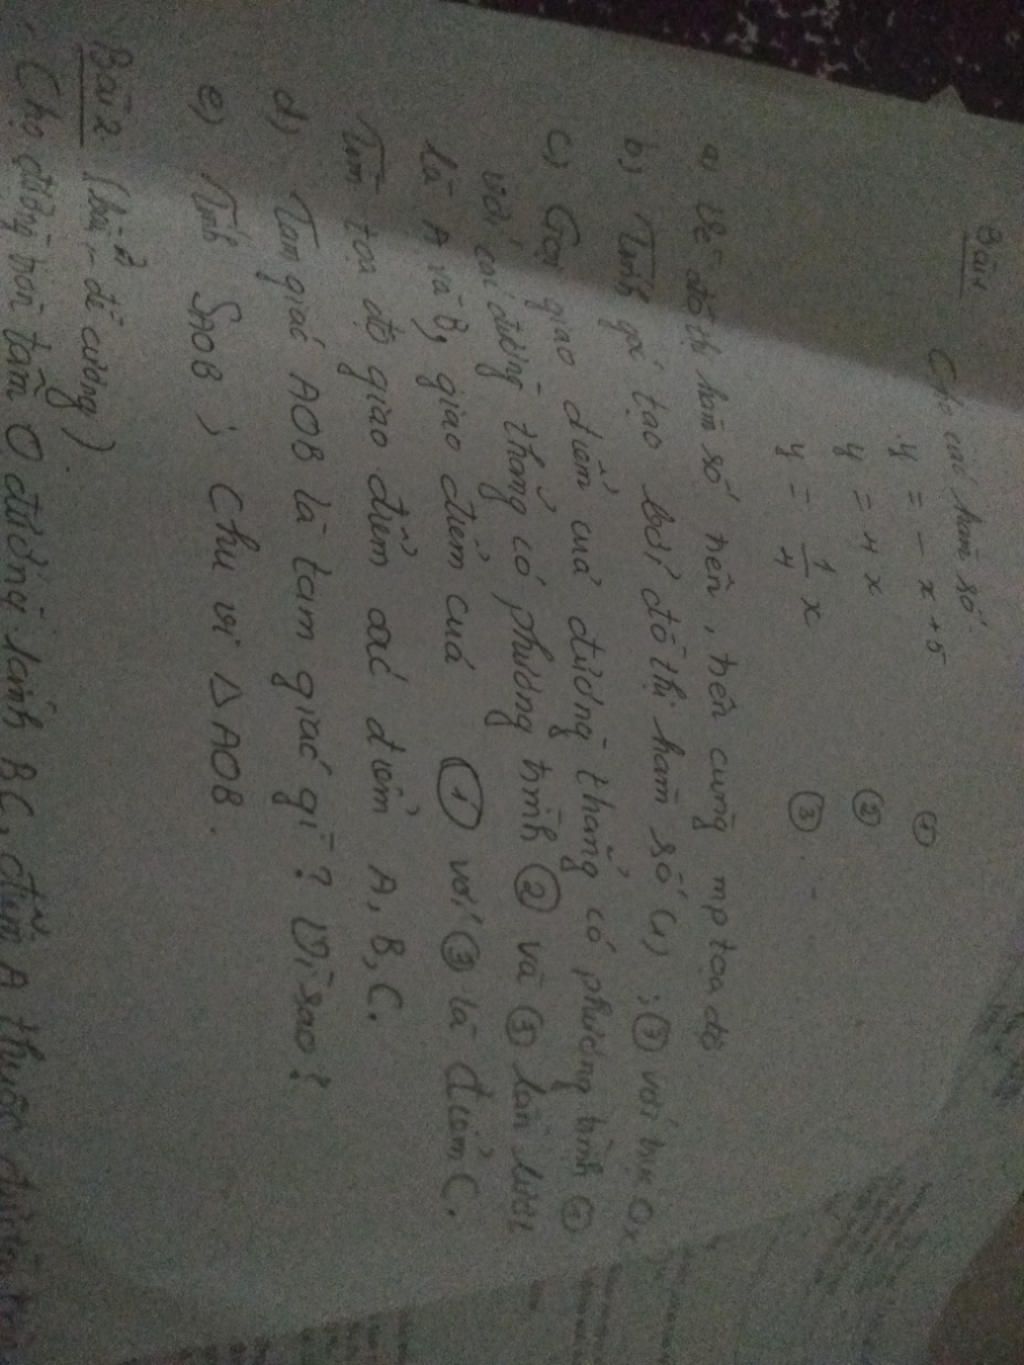 Bài 1
Cho các hàm số
y = - x + 5 ①
y = 4 x ②
y = 1/4 x ③
a, Vẽ đồ thị hàm số trên, trên cùng mp tọa độ
b, Tính góc tạo bởi đồ thị hàm số (1) ; ② với trục Ox
c, Gọi giao điểm của đường thẳng có phương trình ①
với các đường thẳng có phương trình ② và ③ lần lượt
là A và B, giao điểm của ① với ③ là điểm C.
Tìm tọa độ giao điểm các điểm A, B, C.
d, Tam giác AOB là tam giác gì? Vì sao?
e, Tính SAOB ; Chu vi Δ AOB.
Bài 2 đề cương)
Cho đường tròn tâm O đường kính BC, điểm A thuộc